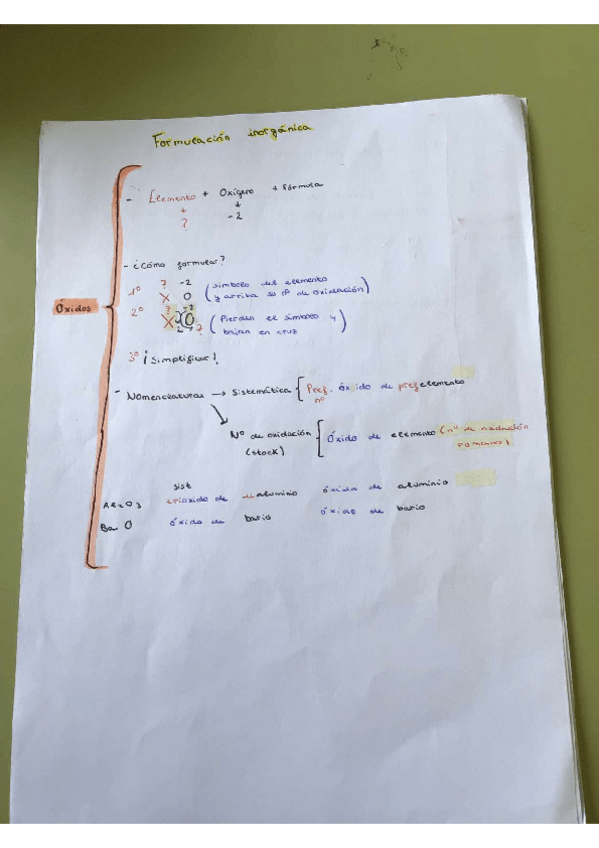 Formulación inorgánica
- Elemento + Oxígeno → fórmula
? -2
- ¿Cómo formular?
1º ? -2
X O (símbolo del elemento y arriba su nº de oxidación)
2º ? -2
X2O? (Pierden el símbolo y bajan en cruz)
3º ¡Simplificar!
Óxidos
- Nomenclaturas → Sistemática { Pref. óxido de pref elemento
nº
Nº de oxidación (stock) { Óxido de elemento (nº de oxidación romanos)
sist
Al2O3 trióxido de dialuminio óxido de aluminio
BaO óxido de bario óxido de bario